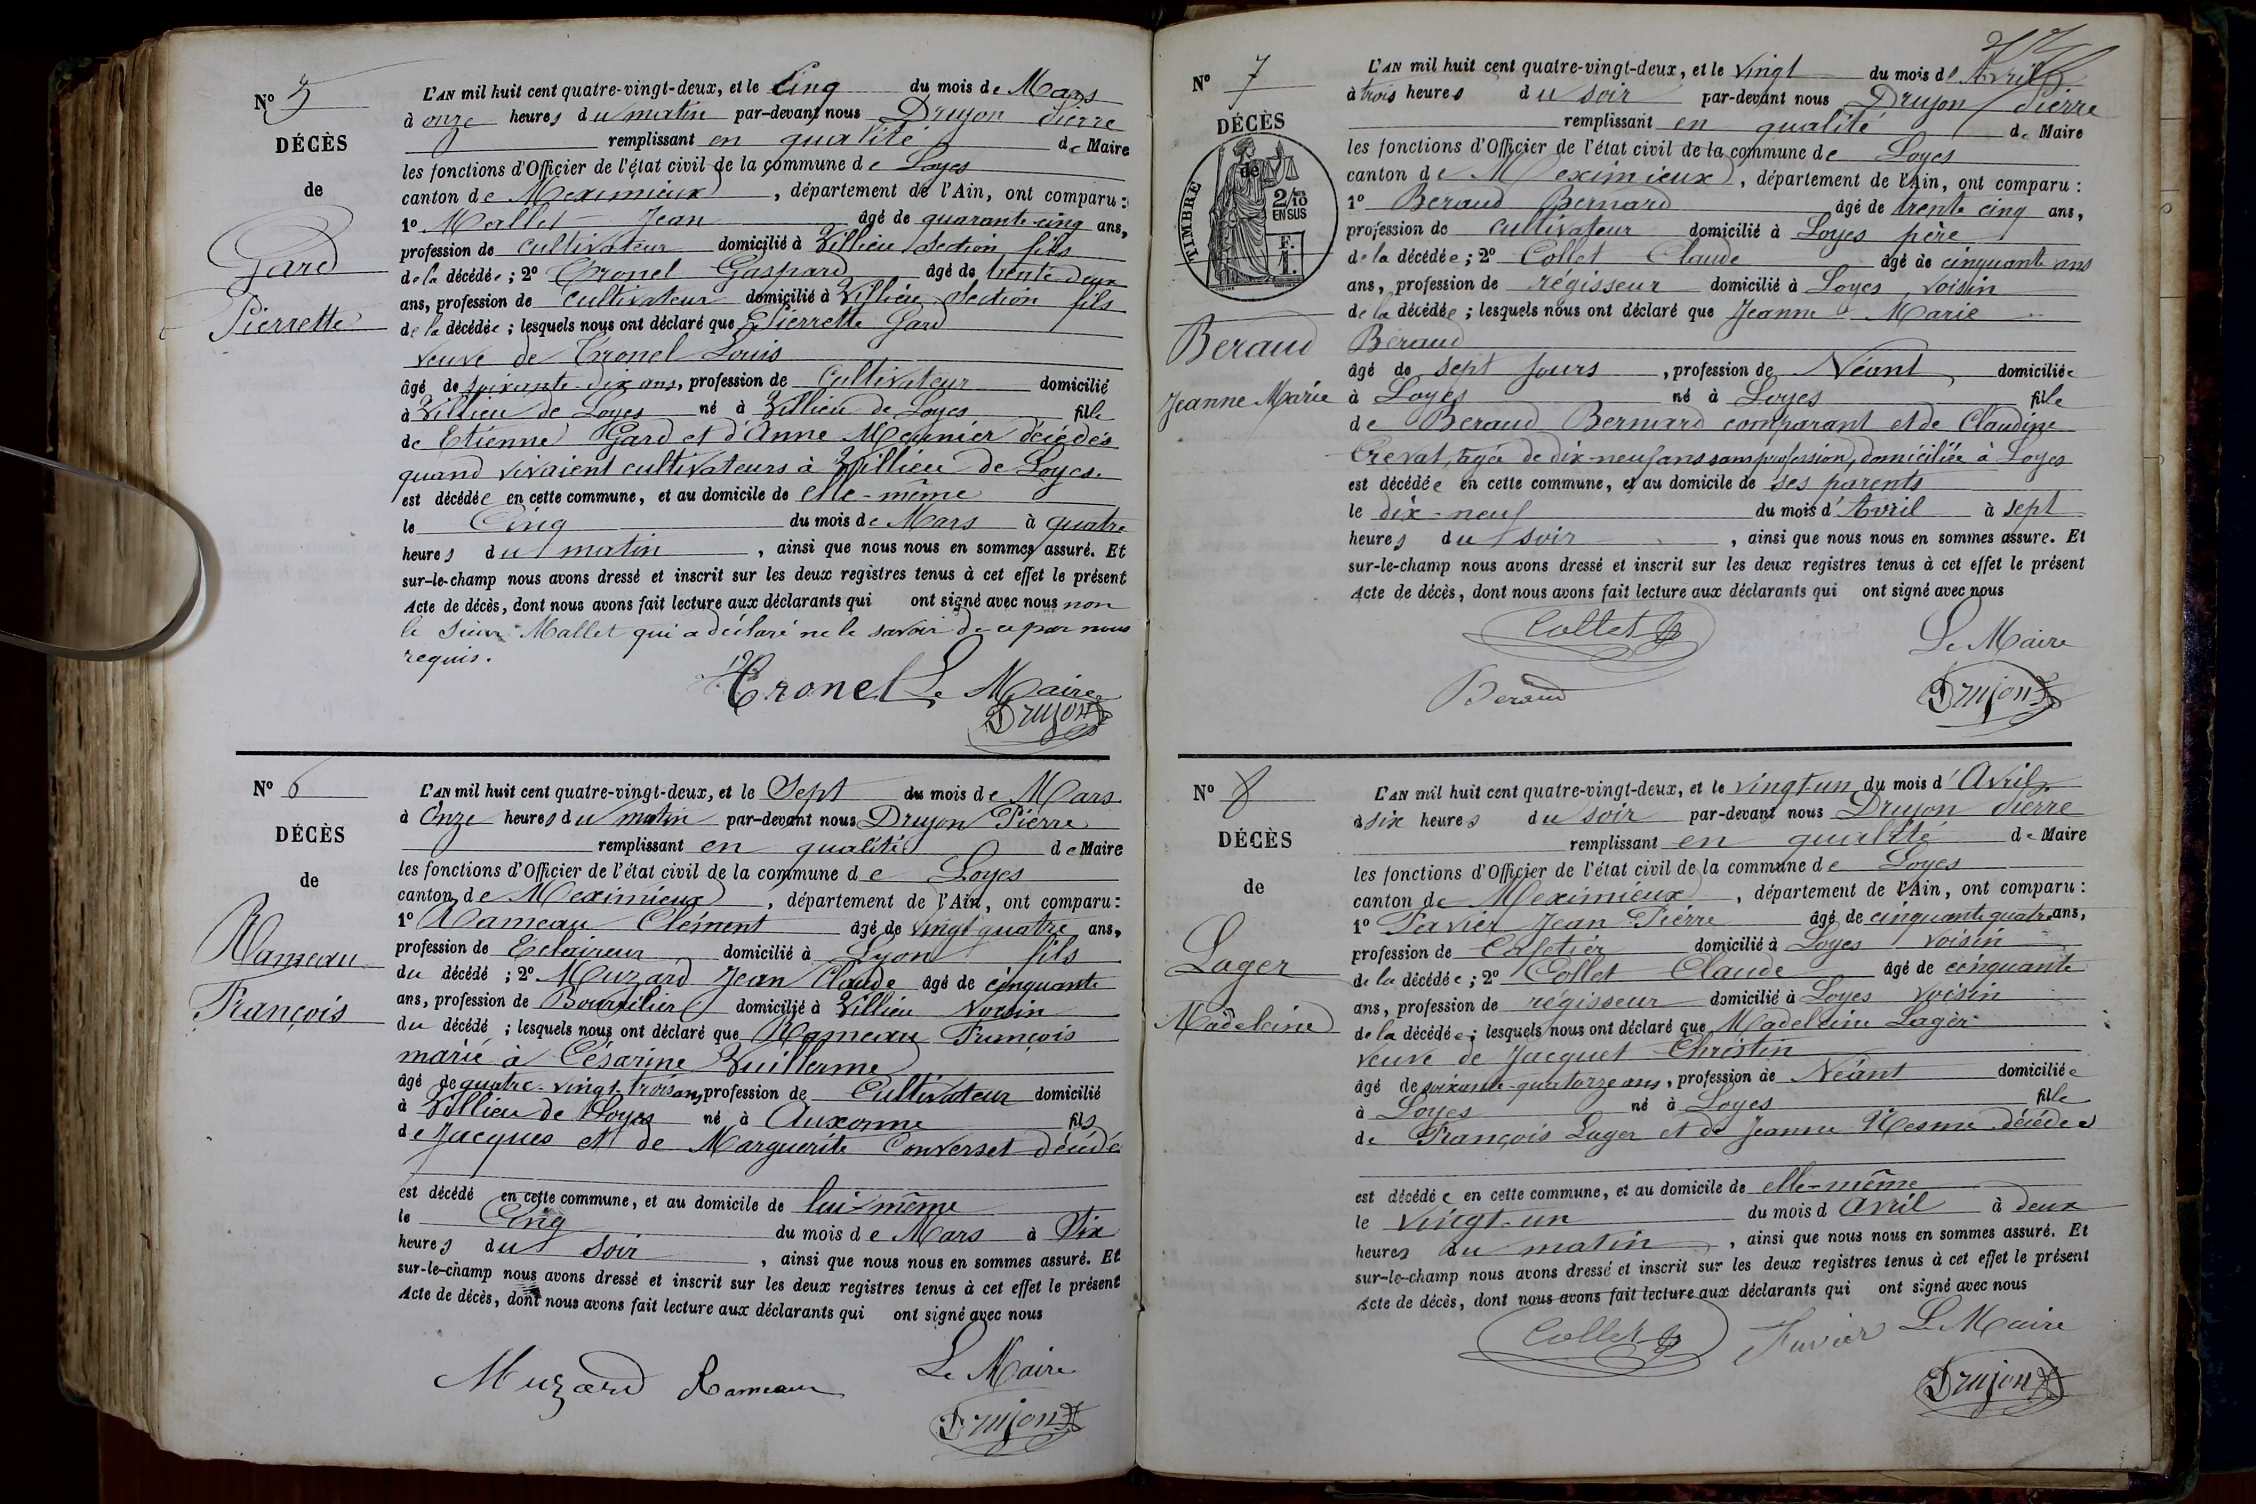 N° 5
DÉCÈS
de
Gard
Pierrette
L'AN mil huit cent quatre-vingt-deux, et le Cinq du mois de Mars
à onze heures du matin par-devant nous Drujon Pierre
remplissant en qualité de Maire
les fonctions d'Officier de l'état civil de la commune de Loyes
canton de Meximieux, département de l'Ain, ont comparu :
1° Mallet Jean âgé de quarante-cinq ans,
profession de cultivateur domicilié à Villieu section fils
de la décédée ; 2° Tronel Gaspard âgé de trente-deux
ans, profession de cultivateur domicilié à Villieu section fils
de la décédée ; lesquels nous ont déclaré que Pierrette Gard
veuve de Tronel Louis
âgé de soixante-dix ans, profession de Cultivateur domicilié
à Villieu de Loyes né à Villieu de Loyes fille
de Etienne Gard et d'Anne Meunier décédés
quand vivaient cultivateurs à Villieu de Loyes.
est décédée en cette commune, et au domicile de elle-même
le Cinq du mois de Mars à quatre
heures du matin, ainsi que nous nous en sommes assuré. Et
sur-le-champ nous avons dressé et inscrit sur les deux registres tenus à cet effet le présent
Acte de décès, dont nous avons fait lecture aux déclarants qui ont signé avec nous non
le sieur Mallet qui a déclaré ne le savoir de ce par nous
requis.
Tronel Le Maire
Drujon
N° 6
DÉCÈS
de
Rameau
François
L'AN mil huit cent quatre-vingt-deux, et le Sept du mois de Mars
à Onze heures du matin par-devant nous Drujon Pierre
remplissant en qualité de Maire
les fonctions d'Officier de l'état civil de la commune de Loyes
canton de Meximieux, département de l'Ain, ont comparu :
1° Rameau Clément âgé de vingt quatre ans,
profession de Eclaireur domicilié à Lyon fils
du décédé ; 2° Muzard Jean Claude âgé de cinquante
ans, profession de Bourrelier domicilié à Villieu voisin
du décédé ; lesquels nous ont déclaré que Rameau François
marié à Césarine Vuillerme
âgé de quatre-vingt-trois ans, profession de Cultivateur domicilié
à Villieu de Loyes né à Auxonne fils
de Jacques et de Marguerite Converset décédé
est décédé en cette commune, et au domicile de lui-même
le Cinq du mois de Mars à Six
heures du soir, ainsi que nous nous en sommes assuré. Et
sur-le-champ nous avons dressé et inscrit sur les deux registres tenus à cet effet le présent
Acte de décès, dont nous avons fait lecture aux déclarants qui ont signé avec nous
Muzard Rameau Le Maire
Drujon
N° 7
DÉCÈS
de
TIMBRE
2/10
EN SUS
F.
1.
Beraud
Jeanne Marie
L'AN mil huit cent quatre-vingt-deux, et le vingt du mois d'Avril
à trois heures du soir par-devant nous Drujon Pierre
remplissant en qualité de Maire
les fonctions d'Officier de l'état civil de la commune de Loyes
canton de Meximieux, département de l'Ain, ont comparu :
1° Beraud Bernard âgé de trente cinq ans,
profession de cultivateur domicilié à Loyes père
de la décédée ; 2° Collet Claude âgé de cinquante ans
ans, profession de régisseur domicilié à Loyes voisin
de la décédée ; lesquels nous ont déclaré que Jeanne Marie
Beraud
âgé de sept jours, profession de Néant domiciliée
à Loyes né à Loyes fille
de Beraud Bernard comparant et de Claudine
Crevat, âgée de dix-neuf ans sans profession, domiciliée à Loyes
est décédée en cette commune, et au domicile de ses parents
le dix-neuf du mois d'Avril à sept
heures du soir, ainsi que nous nous en sommes assuré. Et
sur-le-champ nous avons dressé et inscrit sur les deux registres tenus à cet effet le présent
Acte de décès, dont nous avons fait lecture aux déclarants qui ont signé avec nous
Collet Le Maire
Beraud Drujon
N° 8
DÉCÈS
de
Lager
Madeleine
L'AN mil huit cent quatre-vingt-deux, et le vingt-un du mois d'Avril
à six heures du soir par-devant nous Drujon Pierre
remplissant en qualité de Maire
les fonctions d'Officier de l'état civil de la commune de Loyes
canton de Meximieux, département de l'Ain, ont comparu :
1° Favier Jean Pierre âgé de cinquante quatre ans,
profession de Cafetier domicilié à Loyes voisin
de la décédée ; 2° Collet Claude âgé de cinquante
ans, profession de régisseur domicilié à Loyes voisin
de la décédée ; lesquels nous ont déclaré que Madeleine Lager
veuve de Jacquet Christin
âgé de soixante-quatorze ans, profession de Néant domiciliée
à Loyes né à Loyes fille
de François Lager et de Jeanne Nesme décédés
est décédée en cette commune, et au domicile de elle-même
le vingt-un du mois d'avril à deux
heures du matin, ainsi que nous nous en sommes assuré. Et
sur-le-champ nous avons dressé et inscrit sur les deux registres tenus à cet effet le présent
Acte de décès, dont nous avons fait lecture aux déclarants qui ont signé avec nous
Collet Favier Le Maire
Drujon